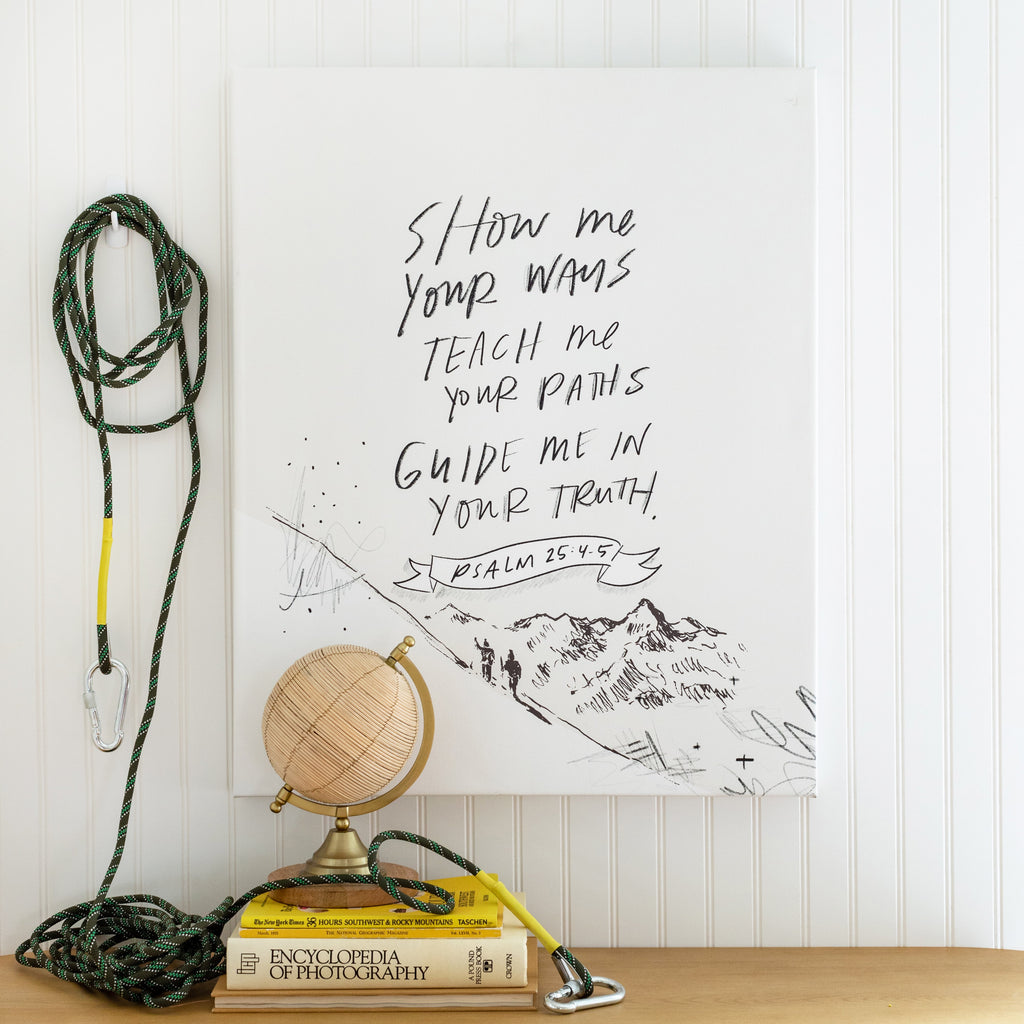 SHOW me
YOUR WAYS
TEACH me
YOUR PATHS
GUIDE ME IN
YOUR TRUTH.
PSALM 25:4-5
The New York Times HOURS SOUTHWEST & ROCKY MOUNTAINS TASCHEN
THE NATIONAL GEOGRAPHIC MAGAZINE
ENCYCLOPEDIA
OF PHOTOGRAPHY
A POUND
PRESS BOOK
CROWN